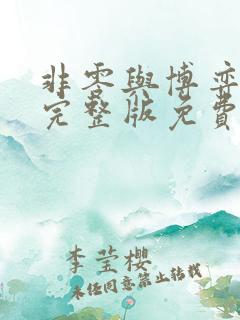 非零與博弈
完整版免費
李莹櫻
未任同意禁止转载